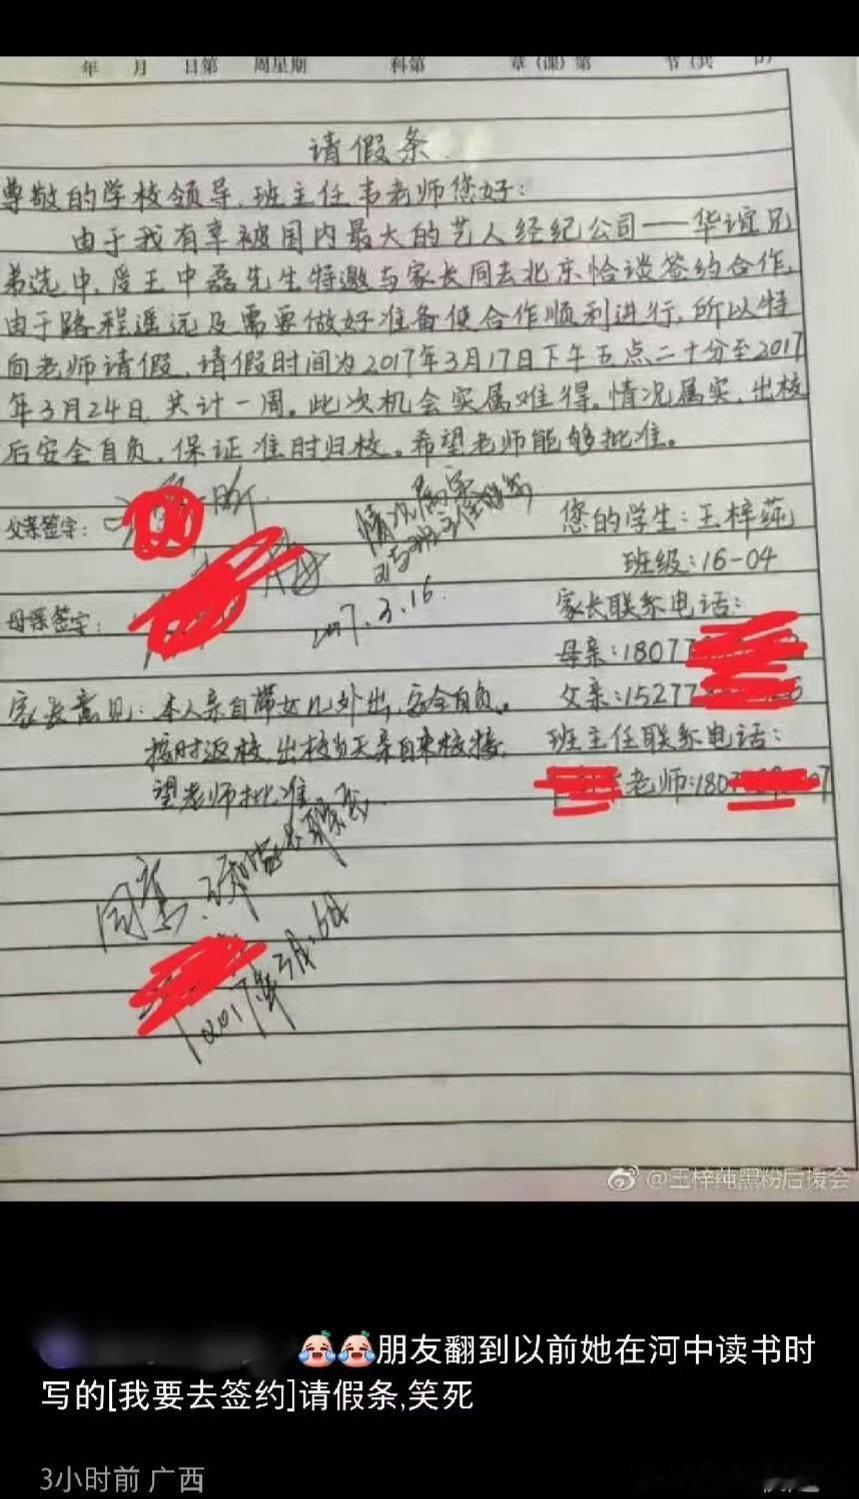 年 月 日第 周星期 科第 章(课)第 节(共 节)
请假条
尊敬的学校领导、班主任韦老师您好:
由于我有幸被国内最大的艺人经纪公司——华谊兄
弟选中,受王中磊先生特邀与家长同去北京恰谈签约合作,
由于路程遥远及需要做好准备使合作顺利进行,所以特
向老师请假,请假时间为2017年3月17日下午五点二十分至2017
年3月24日,共计一周。此次机会实属难得。情况属实,出校
后安全自负,保证准时归校。希望老师能够批准。
父亲签字:
情况属实
可与班主任联系
2017.3.16.
母亲签字:
您的学生:王梓莼
班级:16-04
家长联系电话:
母亲:18077
父亲:15277
班主任联系电话:
老师:180
家长意见:本人亲自带女儿外出,安全自负。
按时返校,出校当天亲自来校接,
望老师批准。
同意.
2017年3月16日
@王梓莼黑粉后援会
朋友翻到以前她在河中读书时
写的[我要去签约]请假条,笑死
3小时前 广西